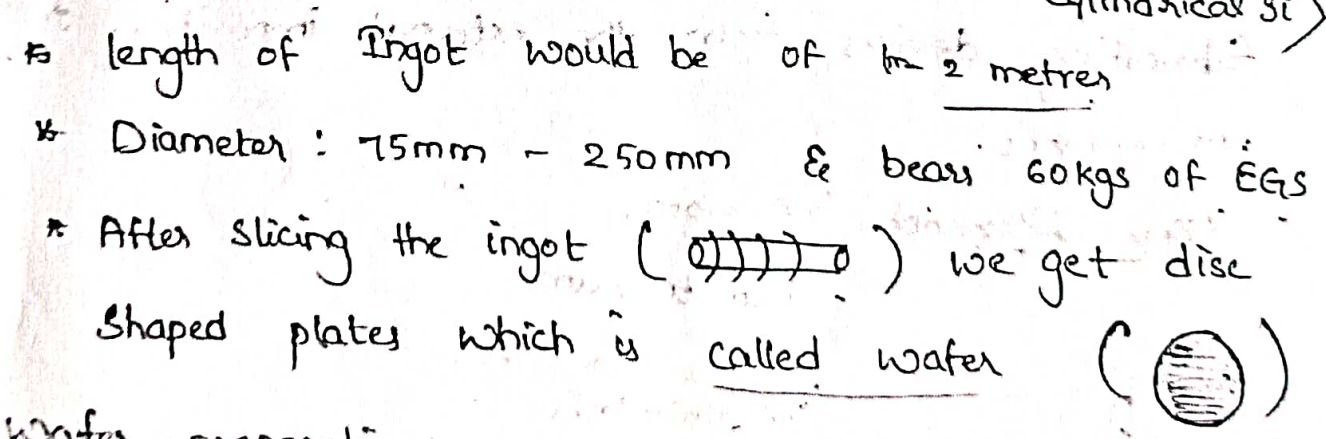 cylindrical Si)
* length of Ingot would be of 2 metres
* Diameter : 75mm - 250mm & bears 60kgs of EGS
* After slicing the ingot ( ) we get disc
shaped plates which is called wafer ( )
Wafer